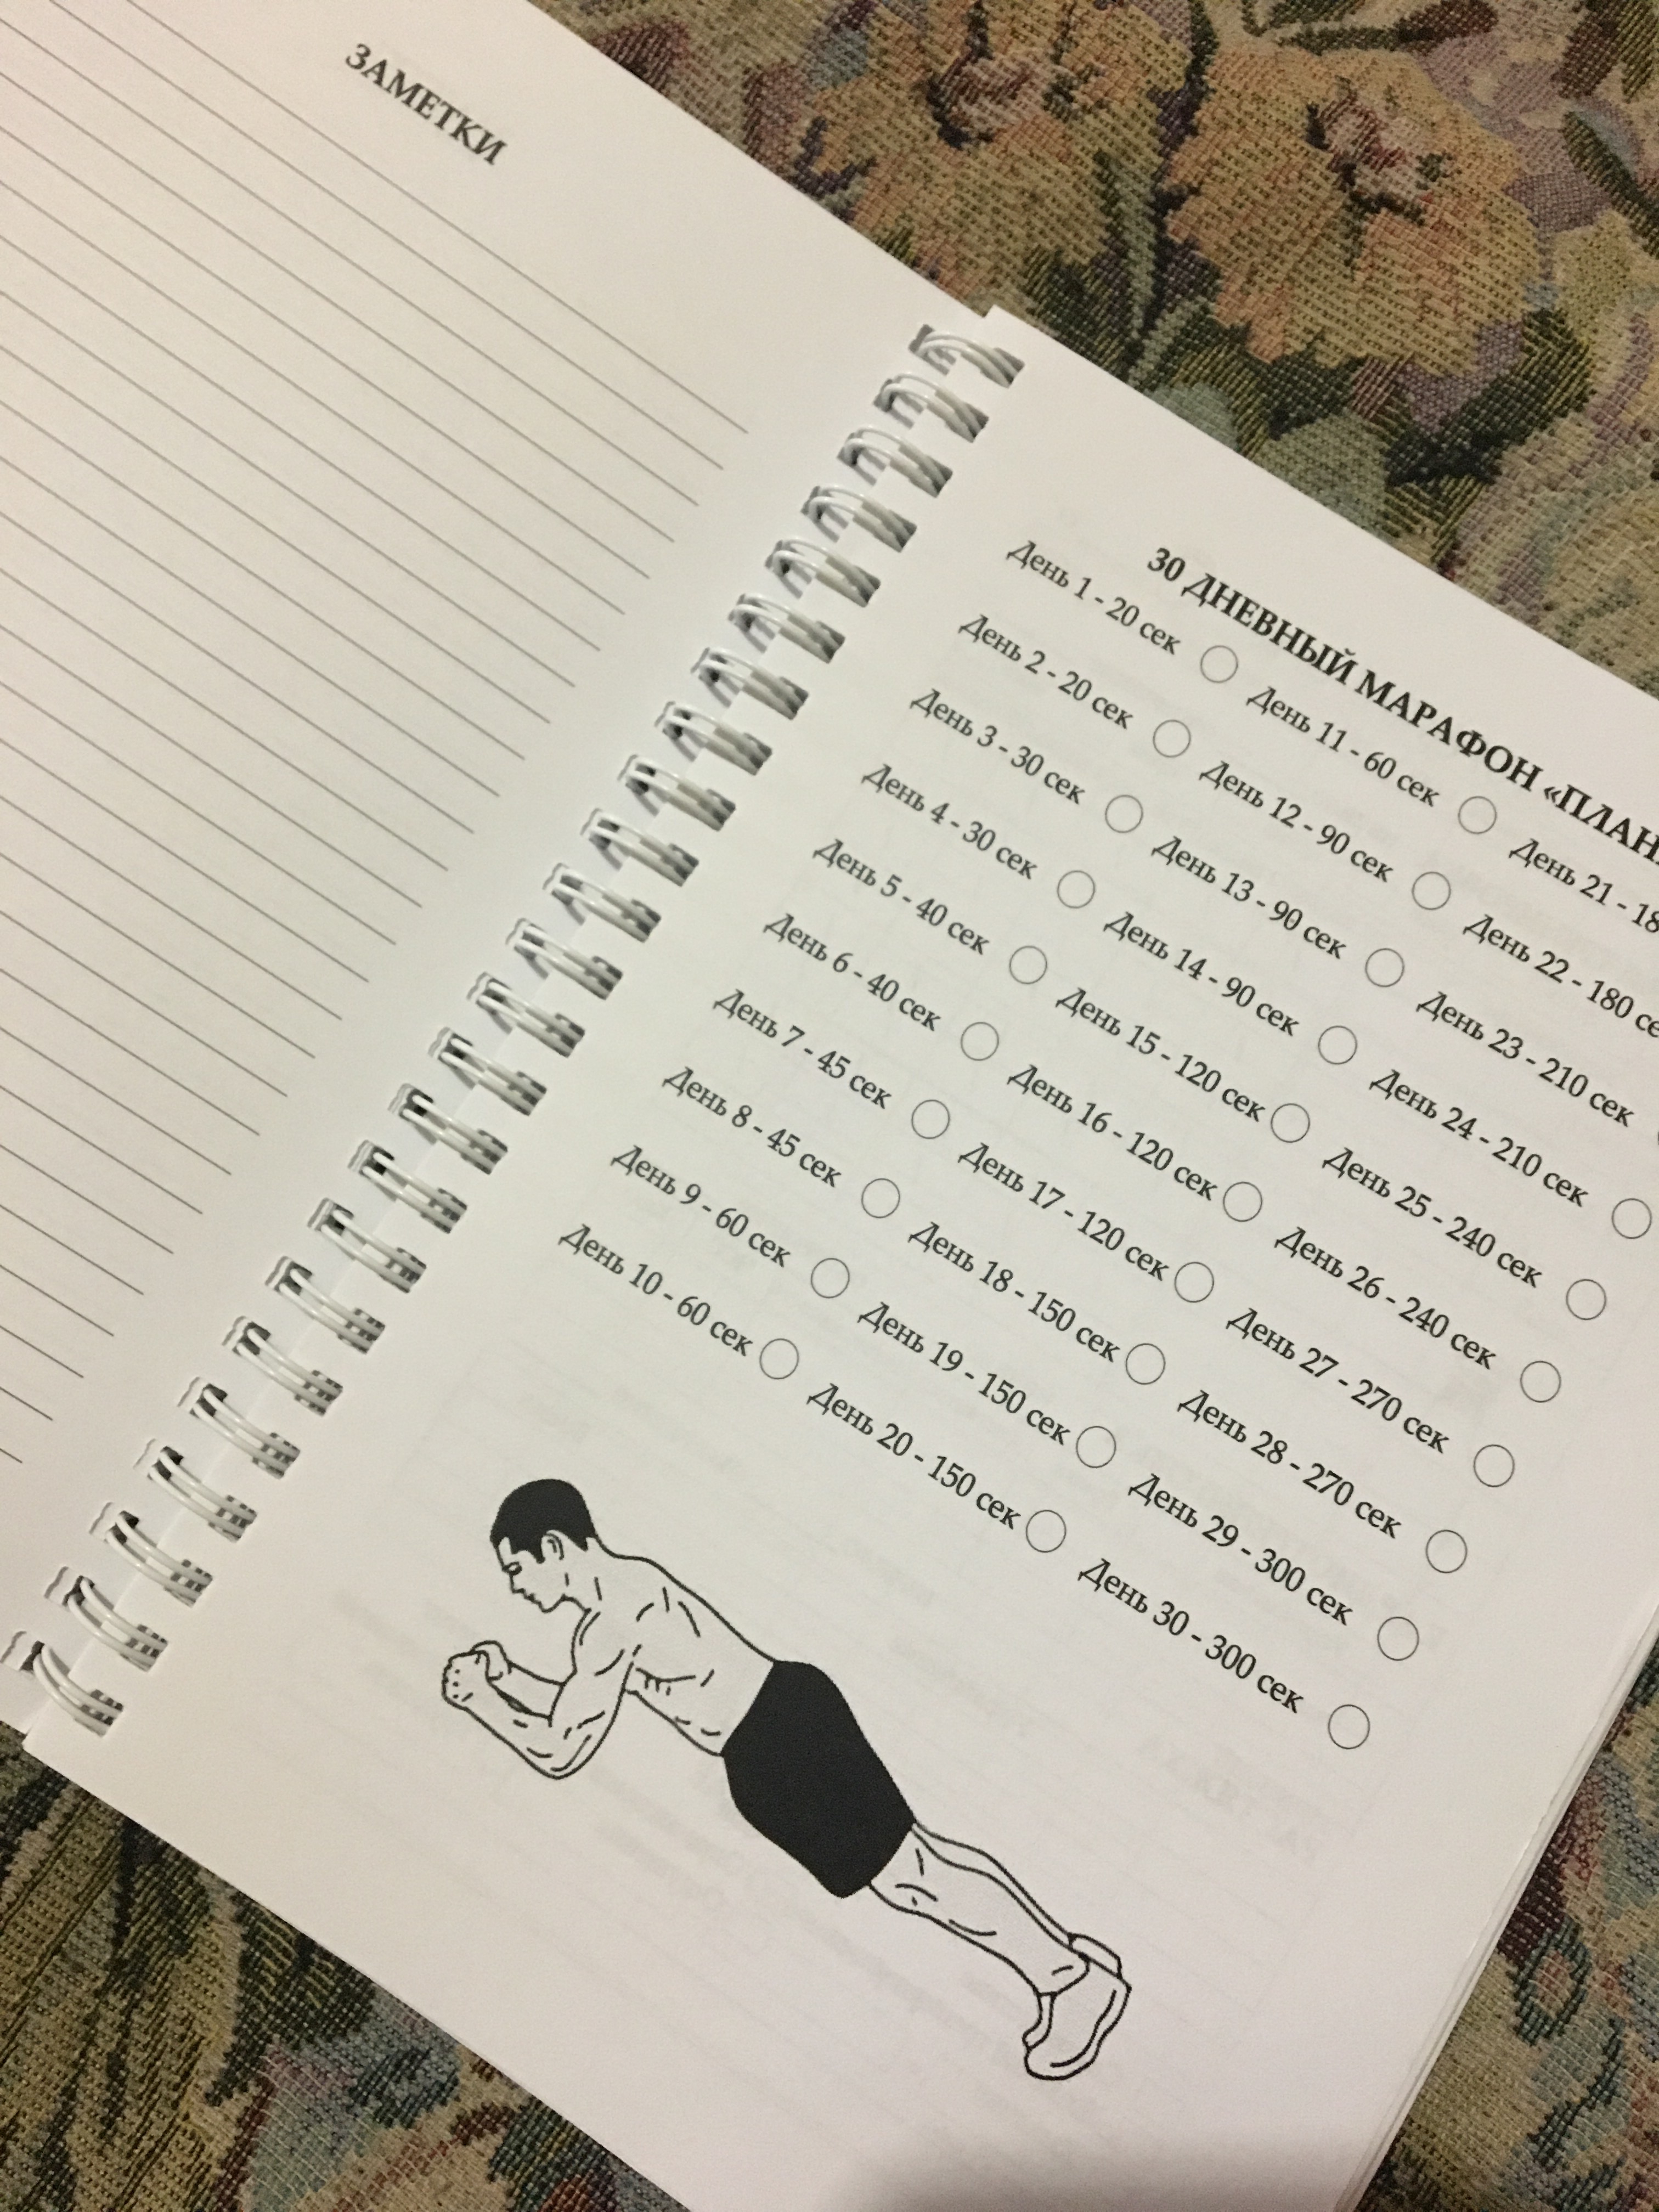 ЗАМЕТКИ
30 ДНЕВНЫЙ МАРАФОН
День 1 - 20 сек День 11 - 60 сек День 21 -
День 2 - 20 сек День 12 - 90 сек День 22 - 180
День 3 - 30 сек День 13 - 90 сек День 23 - 210 сек
День 4 - 30 сек День 14 - 90 сек День 24 - 210 сек
День 5 - 40 сек День 15 - 120 сек День 25 - 240 сек
День 6 - 40 сек День 16 - 120 сек День 26 - 240 сек
День 7 - 45 сек День 17 - 120 сек День 27 - 270 сек
День 8 - 45 сек День 18 - 150 сек День 28 - 270 сек
День 9 - 60 сек День 19 - 150 сек День 29 - 300 сек
День 10 - 60 сек День 20 - 150 сек День 30 - 300 сек